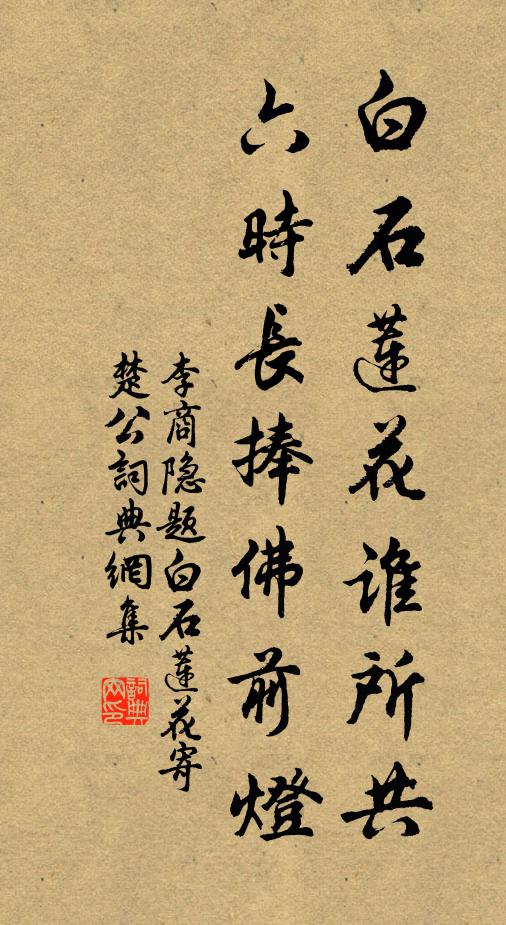 白石蓮花谁所共
六時長捧佛前燈
李商隐题白石蓮花寄
楚公詞典網集
詞典网印